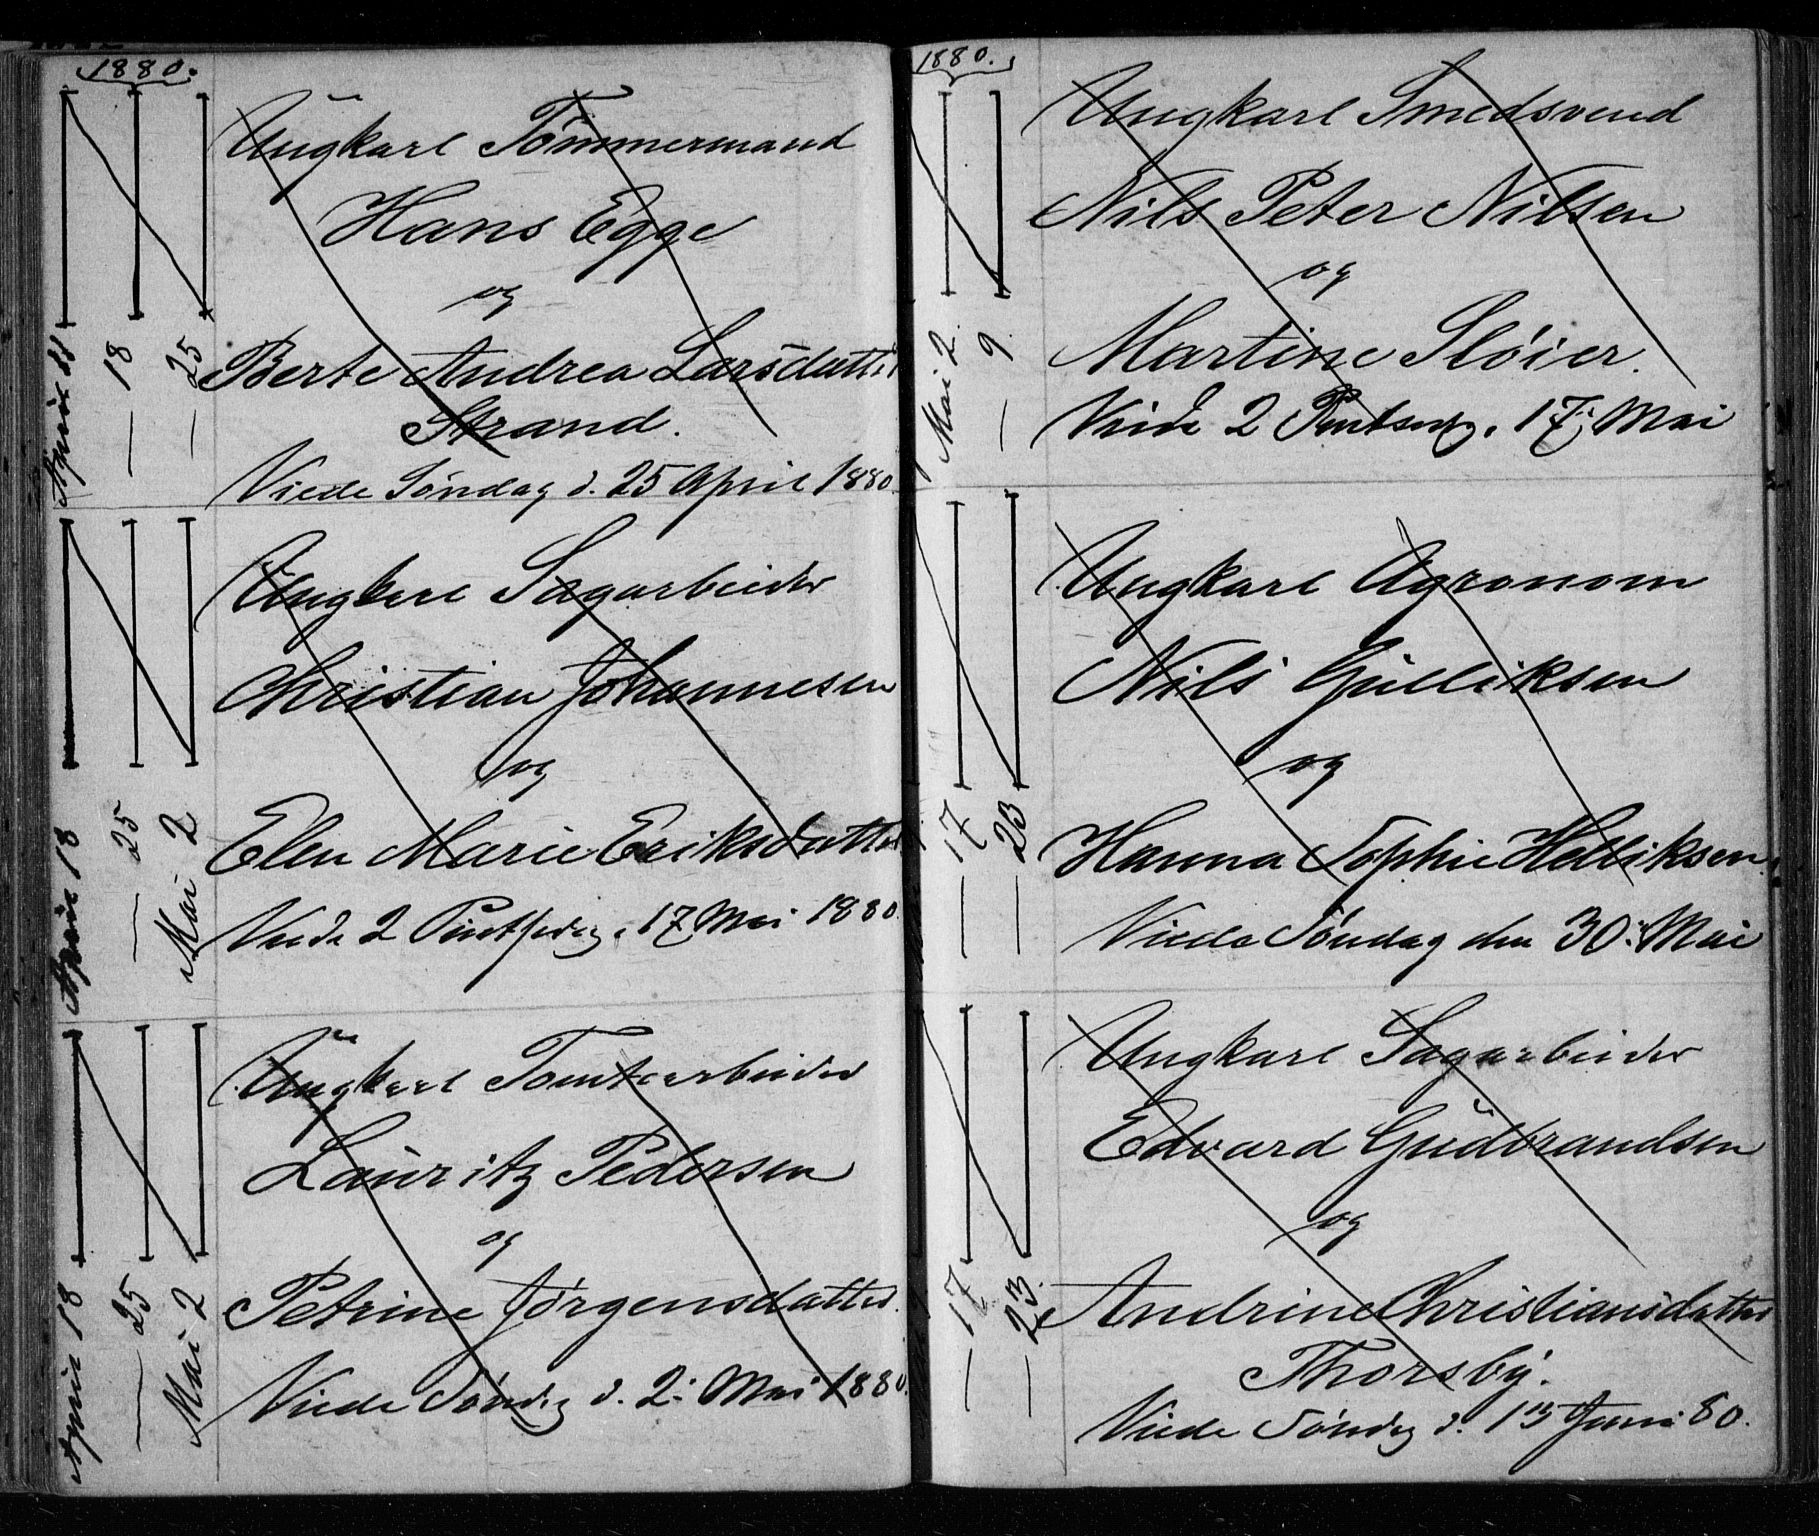 1880.
April 11
— 18
— 25
Ungkarl Tømmermand
Hans Egge
og
Berte Andrea Larsdatter
Strand.
Viede Søndag d. 25 April 1880.
April 18
— 25
Mai 2
Ungkarl Sagarbeider
Christian Johannesen
og
Elen Marie Eriksdatter
Viede 2 17 Mai 1880.
April 18
— 25
Mai 2
Ungkarl Tomtearbeider
Lauritz Pedersen
og
Petrine Jørgensdatter.
Viede Søndag d. 2: Mai 1880.
1880.
Mai 2.
— 9.
Ungkarl Smedsvend
Nils Peter Nilsen
og
Martine Sløier.
Viede 2 17: Mai
— 17
— 23
Ungkarl Agronom
Nils Gulliksen
og
Hanna Sophie Helliksen.
Viede Søndag den 30: Mai
— 17
— 23.
Ungkarl Sagarbeider
Edvard Gudbrandsen
og
Andrine Christiansdatter
Thorsby.
Viede Søndag d. 13 Juni 80.